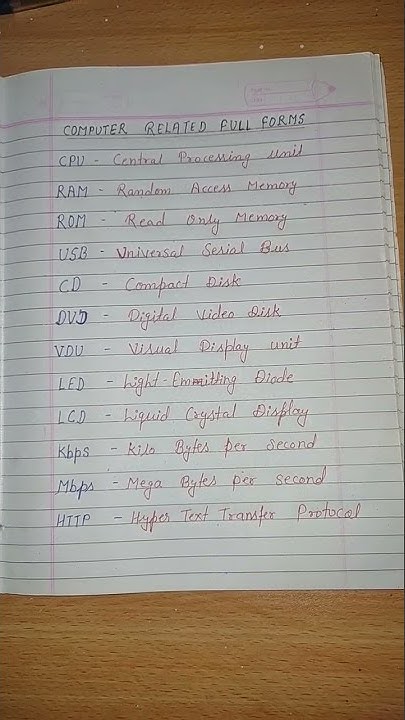 COMPUTER RELATED FULL FORMS
CPU - Central Processing unit
RAM - Random Access Memory
ROM - Read Only Memory
USB - Universal Serial Bus
CD - Compact Disk
DVD - Digital Video Disk
VDU - Visual Display unit
LED - Light-Emmitting Diode
LCD - Liquid Crystal Display
Kbps - Kilo Bytes per second
Mbps - Mega Bytes per second
HTTP - Hyper Text Transfer Protocol